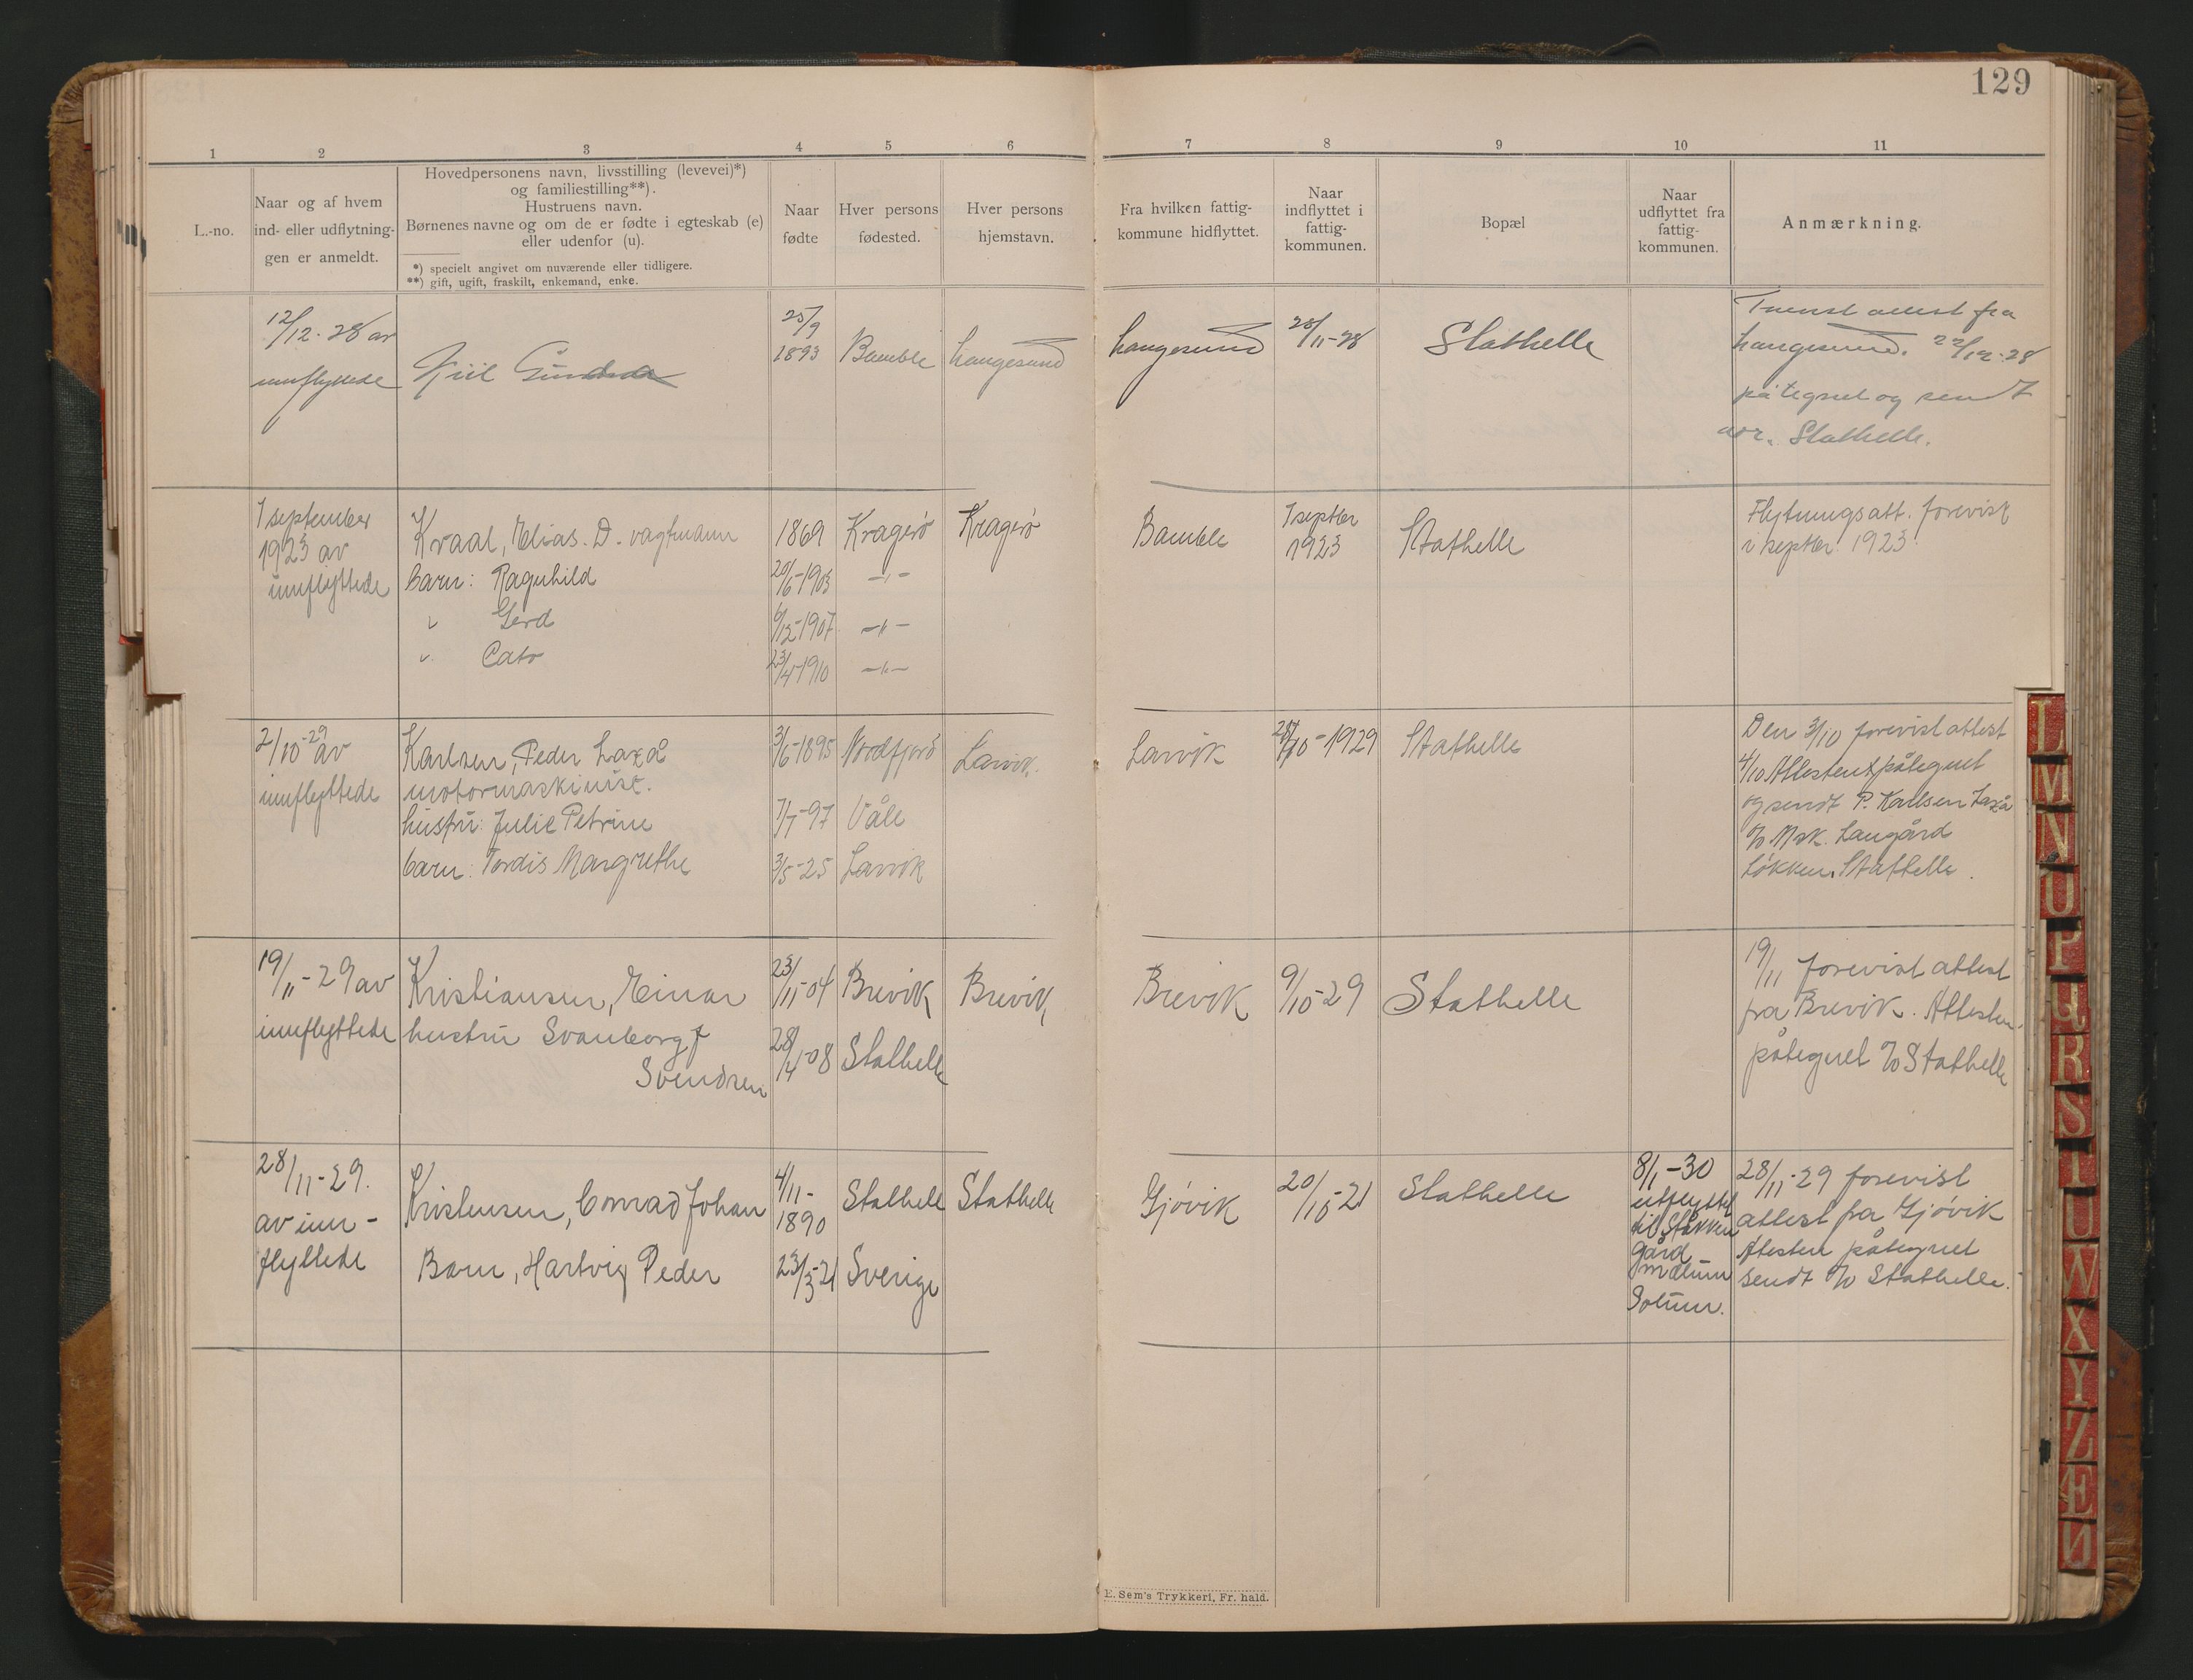 129
1 2 3 4 5 6 7 8 9 10 11
L.-no.
Naar og af hvem
ind- eller udflytnin-
gen er anmeldt.
Hovedpersonens navn, livsstilling (levevei)*)
og familiestilling**).
Hustruens navn.
Børnenes navne og om de er fødte i egteskab (e)
eller udenfor (u).
*) specielt angivet om nuværende eller tidligere.
**) gift, ugift, fraskilt, enkemand, enke.
Naar
fødte
Hver persons
fødested.
Hver persons
hjemstavn.
Fra hvilken fattig-
kommune hidflyttet.
Naar
indflyttet i
fattig-
kommunen.
Bopæl
Naar
udflyttet fra
fattig-
kommunen.
Anmærkning.
12/12-28 av
innflyttede
25/9
1893
Bamble
Langesund
Langesund
28/11-28
Stathelle
attest fra
Langesund. 22/12-28
påtegnet og sendt
adr. Stathelle.
1 september
1923 av
innflyttede
Kraal, Elias. D. vagtmann
barn: Ragnhild
" Gerd
" Cato
1869
20/6-1903
6/12-1907
23/4-1910
Kragerö
-"-
-"-
-"-
Kragerö
Bamble
1 septbr
1923
Stathelle
Flytningsatt. forevist
i septbr 1923
2/10-29 av
innflyttede
Karlsen, Peder Laxå
motormaskinist.
hustru: Julie Petrine
barn: Tordis Margrethe
3/6-1895
7/7-97
3/5-25
Nordfjord
Våle
Larvik
Larvik.
Larvik
/10-1929
Stathelle
Den 3/10 forevist attest
4/10 Attesten påtegnet
og sendt P. Karlsen Laxå
c/o Mek. Laugård
Løkken, Stathelle.
19/11-29 av
innflyttede
Kristiansen, Einar
hustru Svanborg f
Svendsen
23/11-04
28/4-08
Brevik
Stathelle
Brevik,
Brevik
9/10-29
Stathelle
19/11 forevist attest
fra Brevik. Attesten
påtegnet c/o Stathelle
28/11-29.
av inn-
flyttede
Kristensen, Conrad Johan
Barn, Hartvig Peder
4/11-
1890
23/3-21
Stathelle
Sverige
Stathelle
Gjövik
20/10-21
Stathelle
8/1-30
utflyttet
til
Gård
Solum.
28/11-29 forevist
attest fra Gjövik
Atesten påtegnet
sendt c/o Stathelle.
E. Sem's Trykkeri, Fr. hald.
L
M
N
O
P
R
S
T
U
W
X
Y
Z
Æ